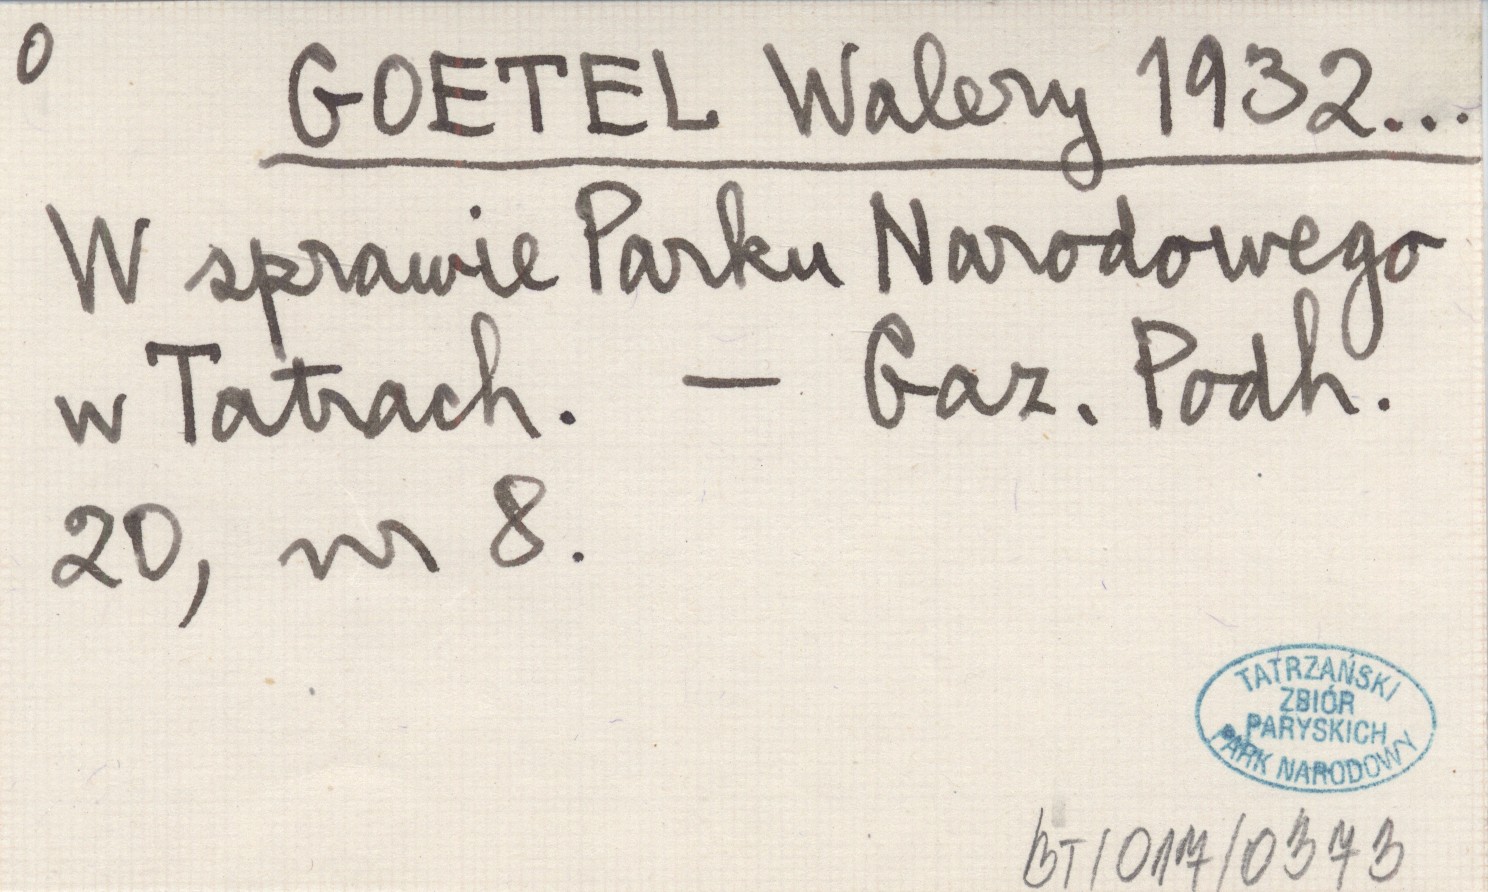 0
GOETEL Walery 1932...
W sprawie Parku Narodowego
w Tatrach. — Gaz. Podh.
20, nr 8.
TATRZAŃSKI
ZBIÓR
PARYSKICH
PARK NARODOWY
BT/017/0373